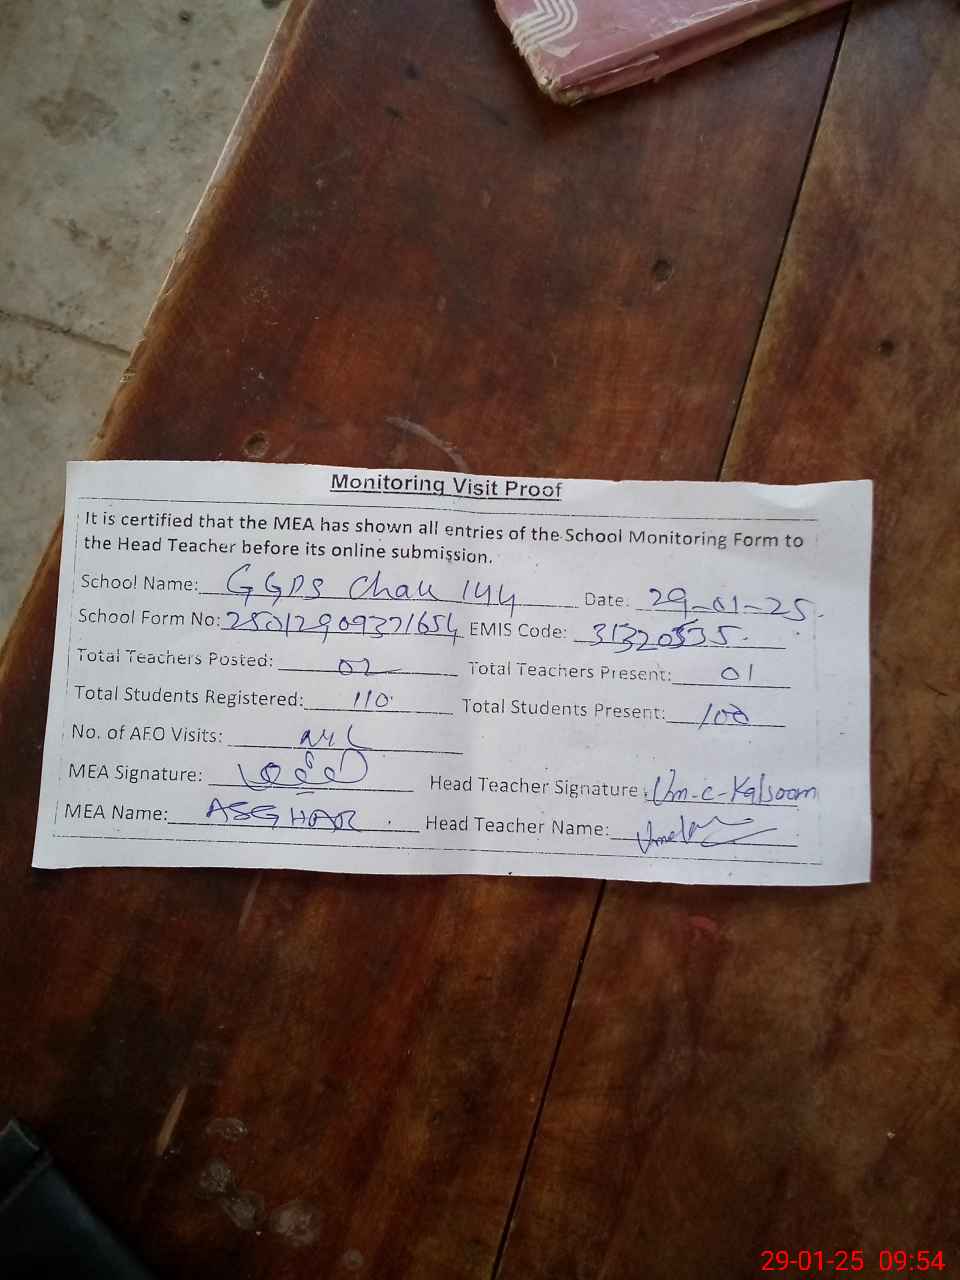 Monitoring Visit Proof
It is certified that the MEA has shown all entries of the School Monitoring Form to
the Head Teacher before its online submission.
School Name: GGPS Chak 144 Date: 29-01-25
School Form No: 25012909371654 EMIS Code: 31320535
Total Teachers Posted: 02 Total Teachers Present: 01
Total Students Registered: 110 Total Students Present: 100
No. of AEO Visits: Nil
MEA Signature: Head Teacher Signature: Um-e-Kalsoom
MEA Name: ASGHAR Head Teacher Name:
29-01-25 09:54